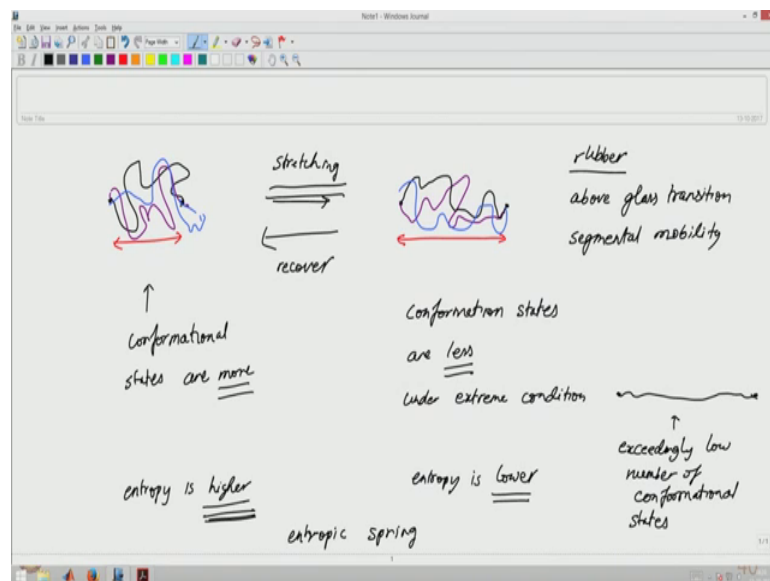 Note1 - Windows Journal
File Edit View Insert Actions Tools Help
Page Width
B I
Note Title
13-10-2017
stretching
recover
rubber
above glass transition
segmental mobility
conformational
states are more
conformation states
are less
under extreme condition
exceedingly low
number of
conformational
states
entropy is higher
entropy is lower
entropic spring
1/1
1